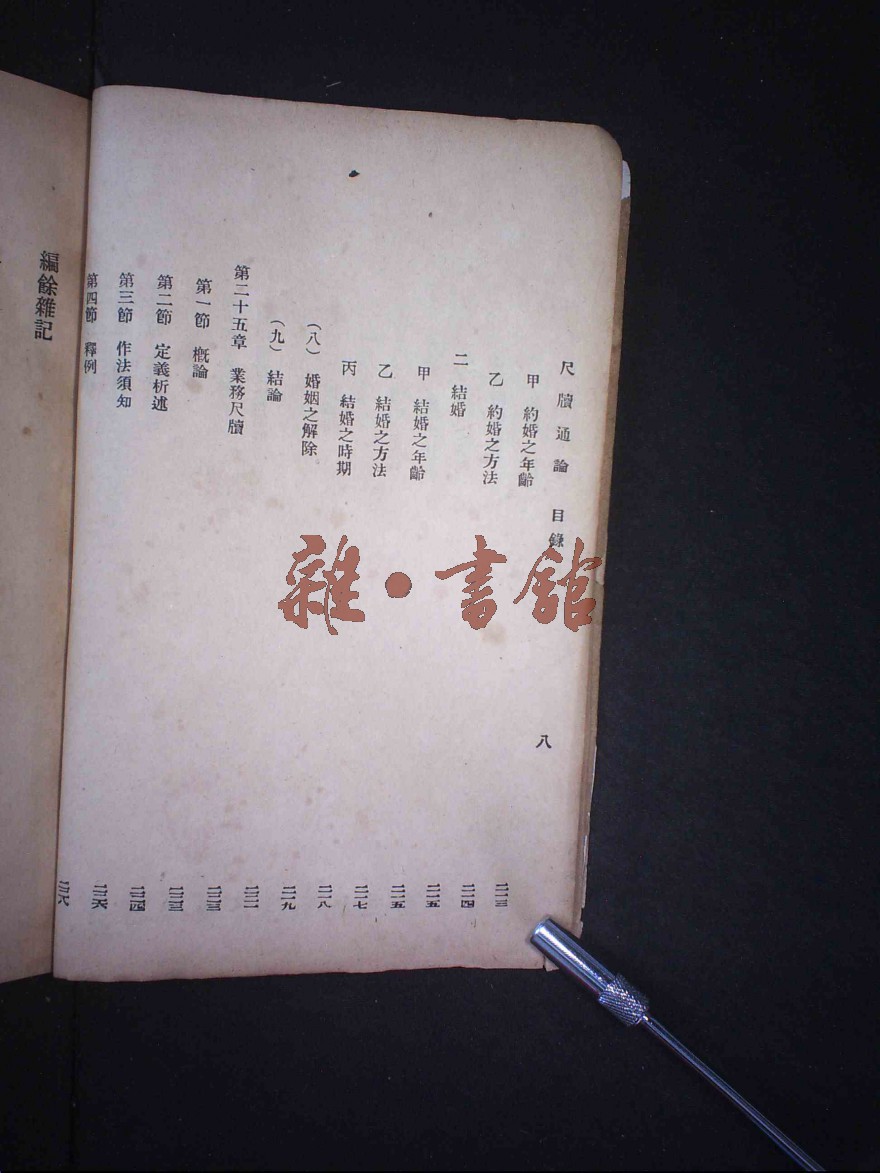 尺牘通論 目錄 八
甲 約婚之年齡 二一三
乙 約婚之方法 二一四
二 結婚 二一五
甲 結婚之年齡 二一五
乙 結婚之方法 二一七
丙 結婚之時期 二一八
（八）婚姻之解除 二一九
（九）結論 二二一
第二十五章 業務尺牘 二二三
第一節 概論 二二三
第二節 定義析述 二二四
第三節 作法須知 二二六
第四節 釋例 二二八
編餘雜記
雜●書館